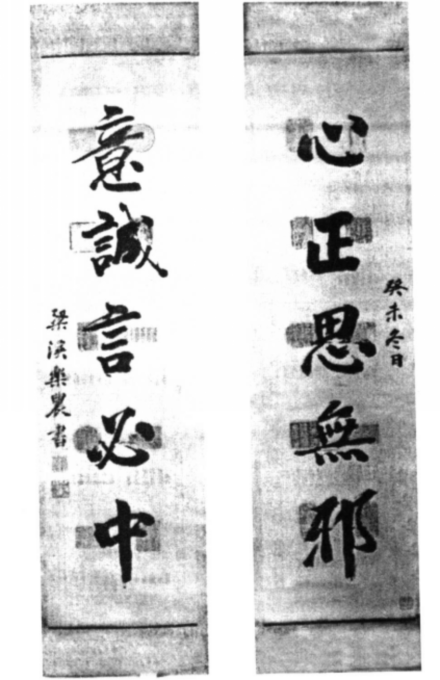 癸未冬日
心正思無邪
意誠言必中
梁溪樂農書